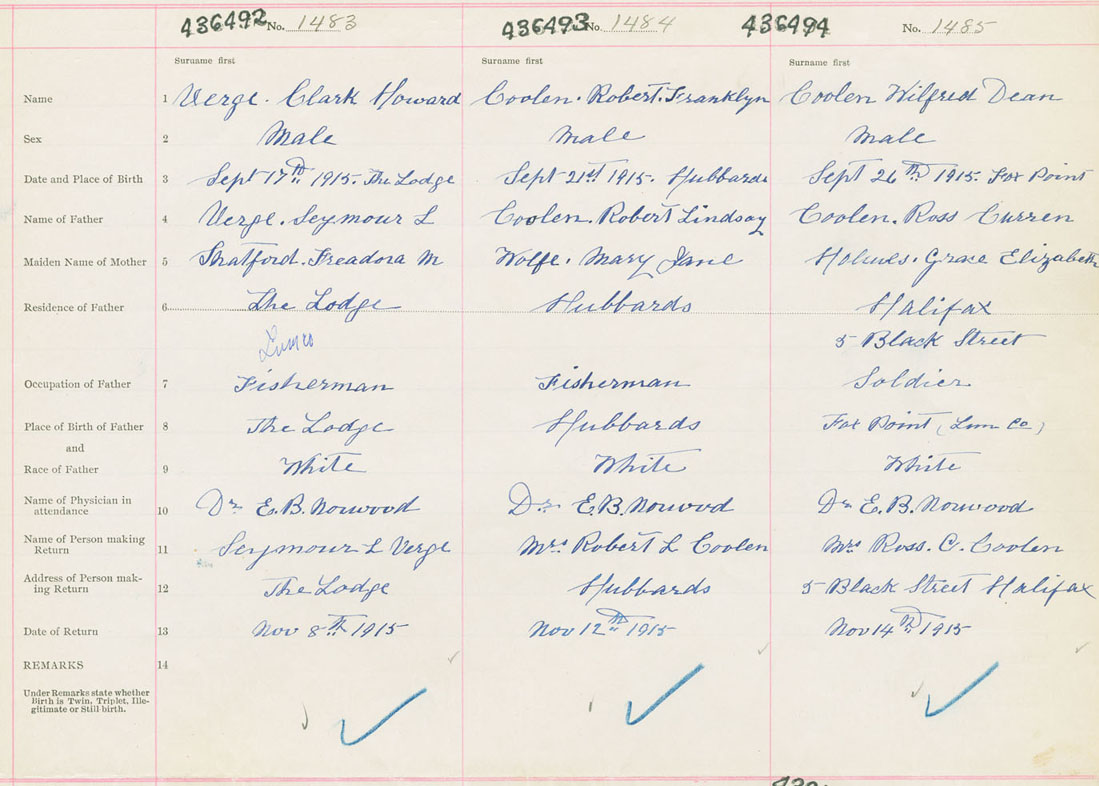 436492 No. 1483 436493 No. 1484 436494 No. 1485
Surname first Surname first Surname first
Name 1 Verge. Clark Howard Coolen. Robert. Franklyn Coolen Wilfred Dean
Sex 2 Male Male Male
Date and Place of Birth 3 Sept 17th 1915. The Lodge Sept 21st 1915. Hubbards Sept 26th 1915. Fox Point
Name of Father 4 Verge. Seymour L Coolen. Robert Lindsay Coolen. Ross Curren
Maiden Name of Mother 5 Shatford. Freadora M Wolfe. Mary Jane Holmes. Grace Elizabeth
Residence of Father 6 The Lodge Hubbards Halifax
5 Black Street
Occupation of Father 7 Fisherman Fisherman Soldier
Place of Birth of Father 8 The Lodge Hubbards Fox Point (Lun Co)
and
Race of Father 9 White White White
Name of Physician in
attendance 10 Dr E.B. Norwood Dr E.B. Norwood Dr E.B. Norwood
Name of Person making
Return 11 Seymour L Verge Mrs Robert L Coolen Mrs Ross. C. Coolen
Address of Person mak-
ing Return 12 The Lodge Hubbards 5 Black Street Halifax
Date of Return 13 Nov 8th 1915 Nov 12th 1915 Nov 14th 1915
REMARKS 14
Under Remarks state whether
Birth is Twin, Triplet, Ille-
gitimate or Still-birth.